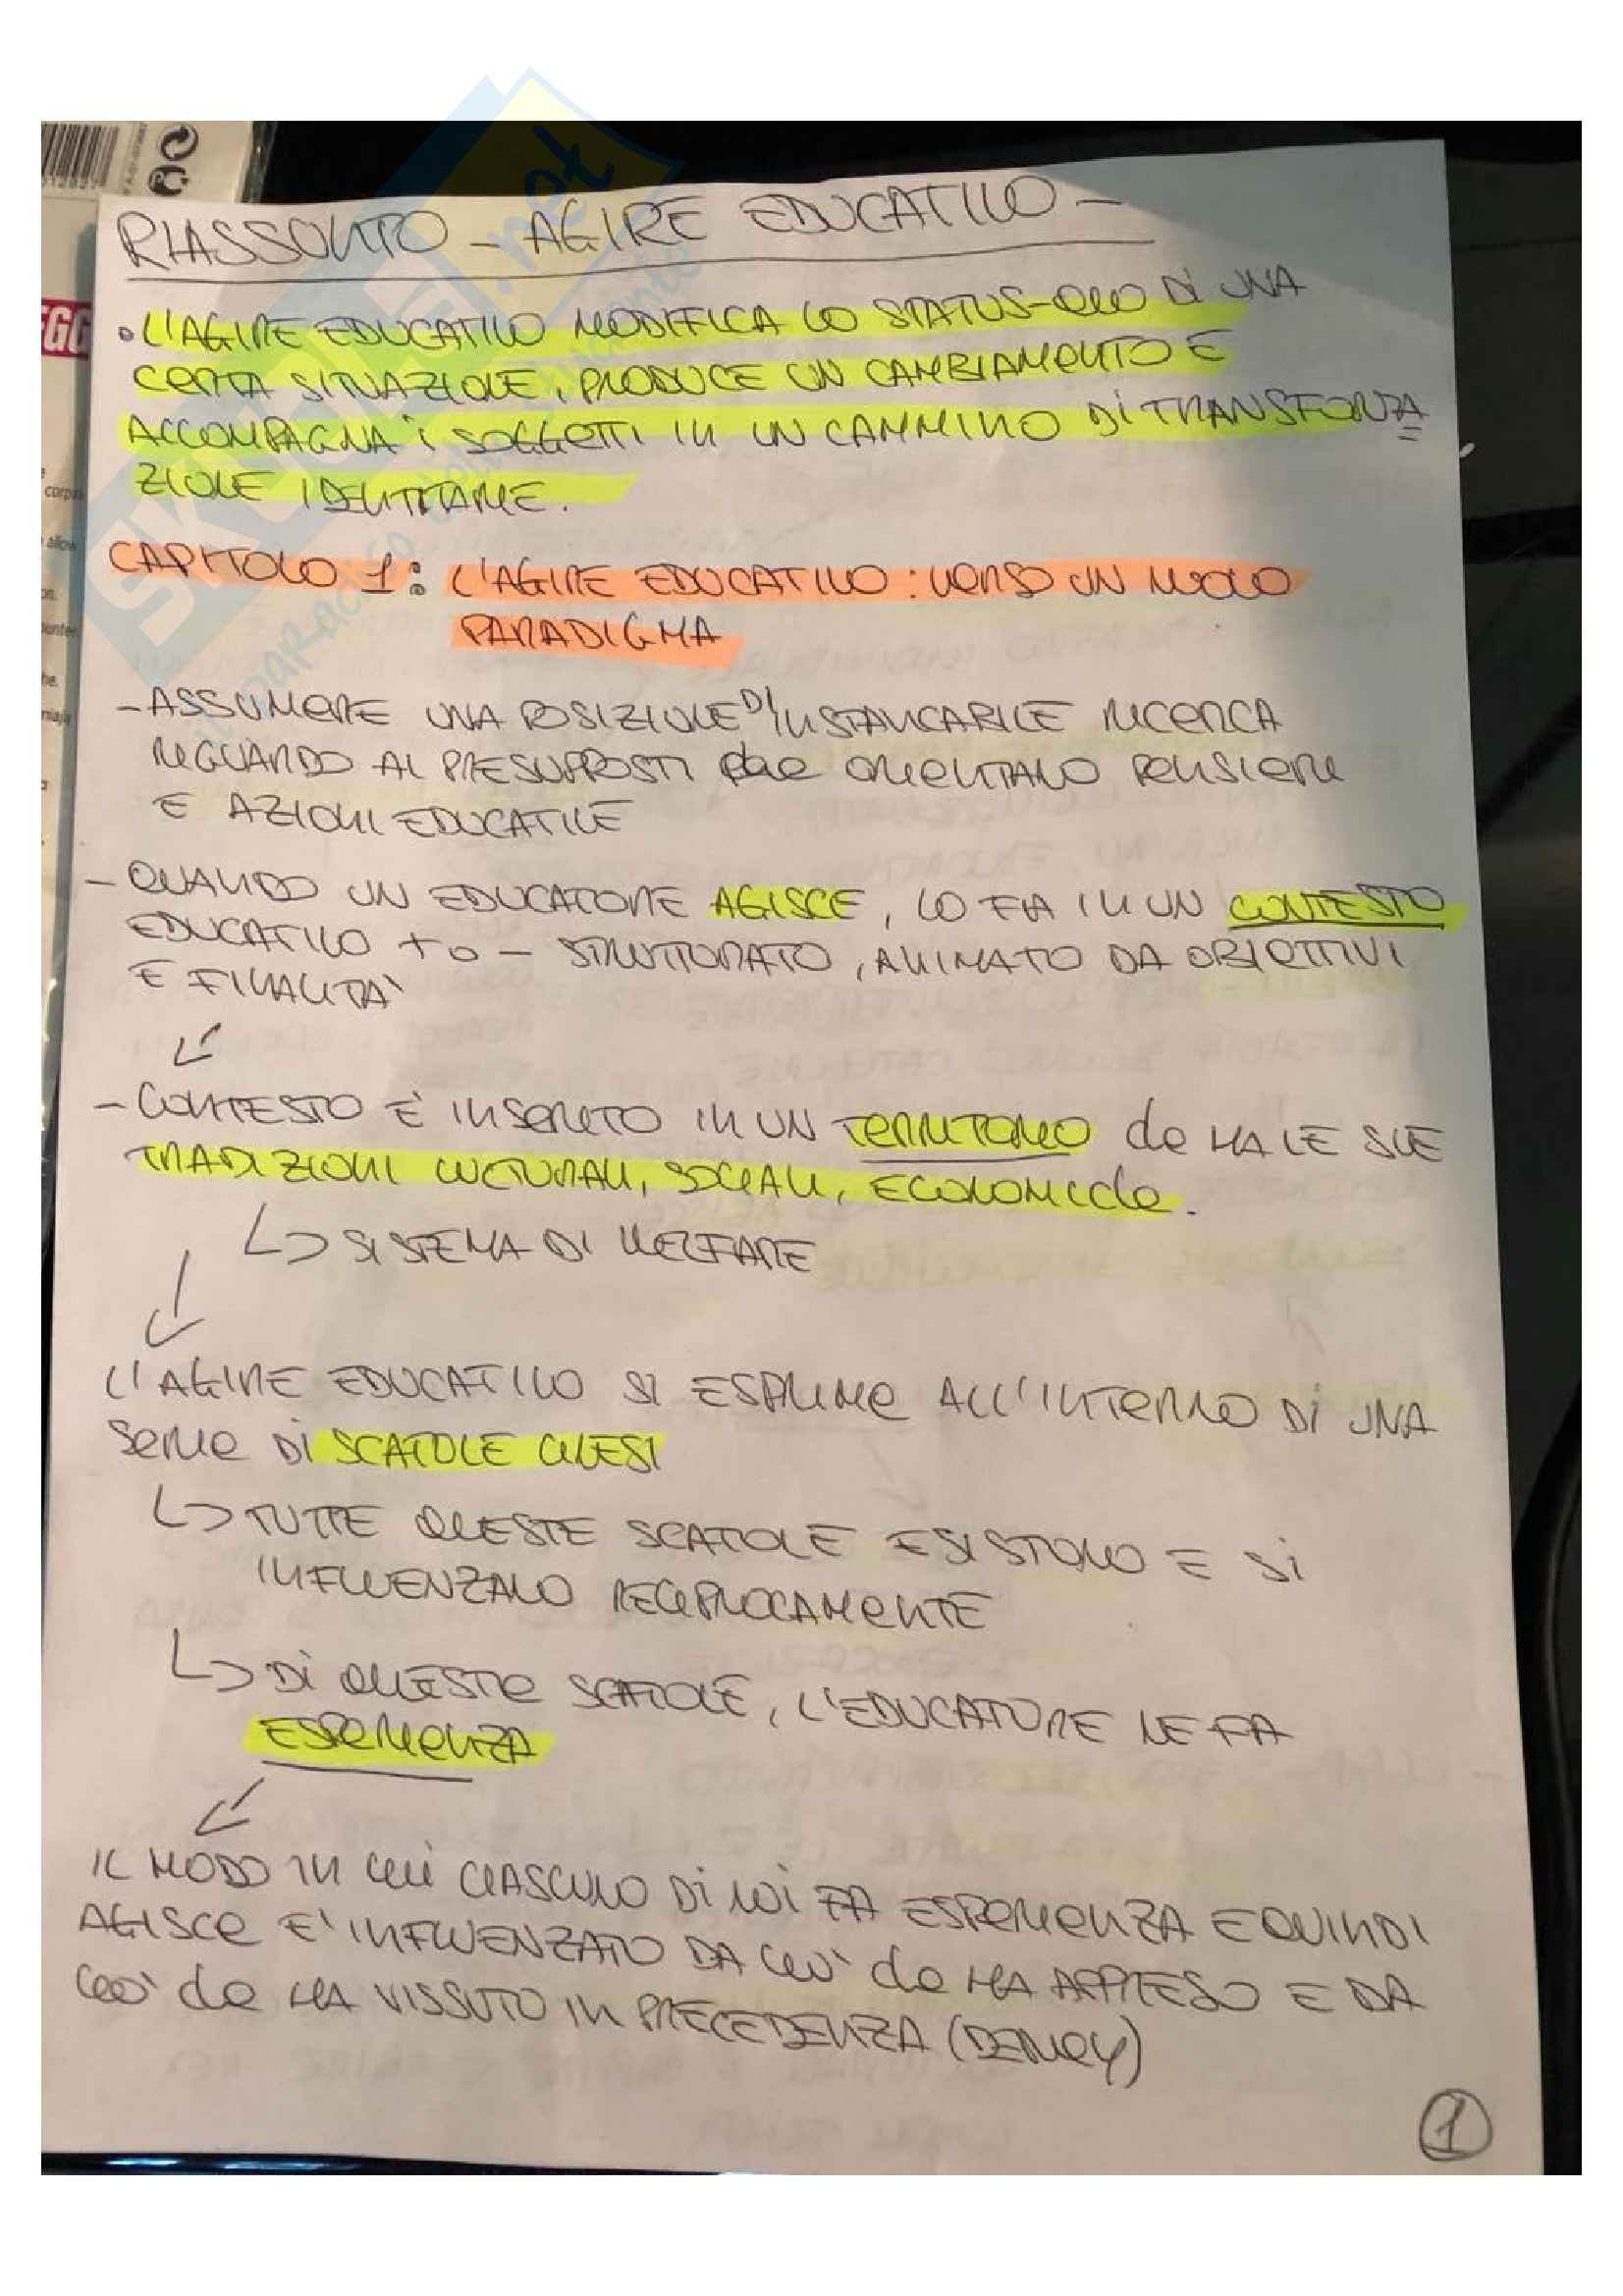 RIASSUNTO - AGIRE EDUCATIVO -
• L'AGIRE EDUCATIVO MODIFICA LO STATUS-QUO DI UNA
CERTA SITUAZIONE, PRODUCE UN CAMBIAMENTO E
ACCOMPAGNA i SOGGETTI IN UN CAMMINO DI TRANSFORZA
ZIONE IDENTITARIE.
CAPITOLO 1: L'AGIRE EDUCATIVO: VERSO UN NUOVO
PARADIGMA
- ASSUMERE UNA POSIZIONE DI INSTANCABILE RICERCA
RIGUARDO AI PRESUPPOSTI che ORIENTANO PENSIERI
E AZIONI EDUCATIVE
- QUANDO UN EDUCATORE AGISCE, LO FA IN UN CONTESTO
EDUCATIVO + O - STRUTTURATO, ANIMATO DA OBIETTIVI
E FINALITA'
- CONTESTO E' INSERITO IN UN TERRITORIO che HA LE SUE
TRADIZIONI CULTURALI, SOCIALI, ECONOMIche.
↳ SISTEMA DI WELFARE
L'AGIRE EDUCATIVO SI ESPRIME ALL'INTERNO DI UNA
SERIE DI SCATOLE CINESI
↳ TUTTE QUESTE SCATOLE ESISTONO E SI
INFLUENZANO RECIPROCAMENTE
↳ DI QUESTE SCATOLE, L'EDUCATORE NE FA
ESPERIENZA
IL MODO IN CUI CIASCUNO DI NOI FA ESPERIENZA E QUINDI
AGISCE E' INFLUENZATO DA CIO' che HA APPRESO E DA
CIO' che HA VISSUTO IN PRECEDENZA (DEWEY)
1